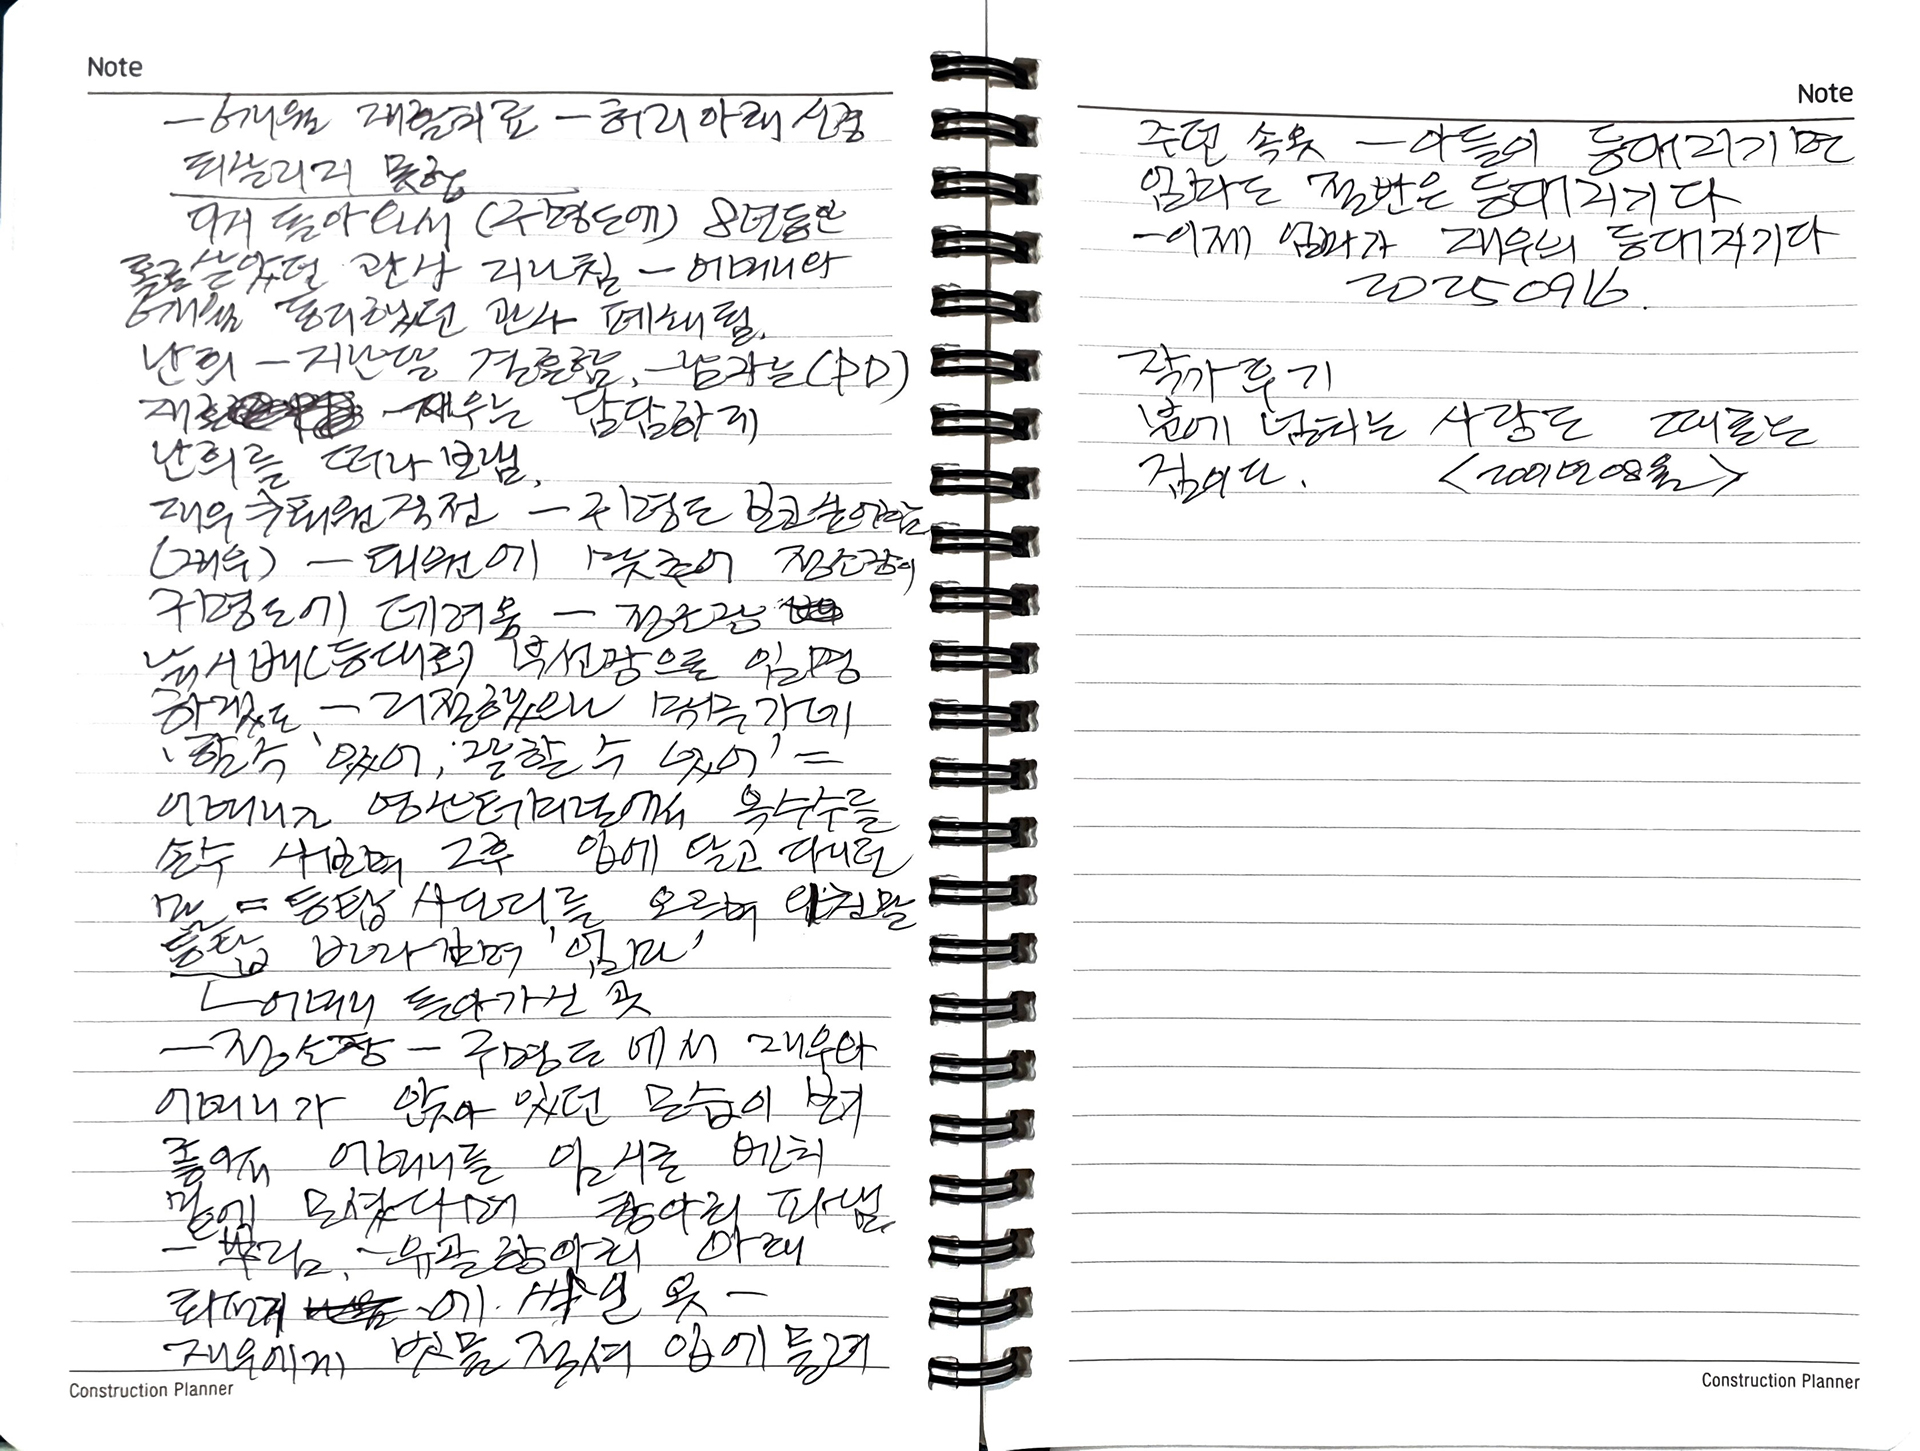 Note
—6개월 재활치료 — 허리아래 신경
되살리지 못함
다시 돌아와서 (구명도에) 8년동안
홀로 살았던 관사 지나침 — 어머니와
6개월 동거했던 관사 폐쇄됨.
난희 — 지난달 결혼함. — 남자는 (PD)
재 — 재우는 담담하게
난희를 떠나보냄.
재우 퇴원 직전 — 구명도 보고싶어함
(재우) — 퇴원에 맞추어 정소장이
구명도에 데려옴 — 정소장
낚시배(등대호) 부선장으로 임명
하겠노 — 거절했으나 맥주가네
'할수 있어, 잘할 수 있어' =
어머니가 여산터미널에서 옥수수를
손수 사보며 그후 입에 달고 다니던
말 = 등탑 사다리를 오르며
등탑 바라보며 '엄마'
어머니 돌아가신 곳
— 정소장 — 구명도에서 재우와
어머니가 앉아 있던 모습이 보기
좋아서 어머니를 임시로 벤치
밑에 모셨다며 항아리 파냄
— 뿌림. — 유골항아리 아래
화석에 에 쌓인 옷 —
재우에게 빗물 적셔 입에 물려
Construction Planner
Note
주던 속옷 — 아들이 등대지기면
엄마도 절반은 등대지기다
— 이제 엄마가 재우의 등대지기다
20250916.
작가후기
분에 넘치는 사랑도 때로는
짐이다. <2001년08월>
Construction Planner